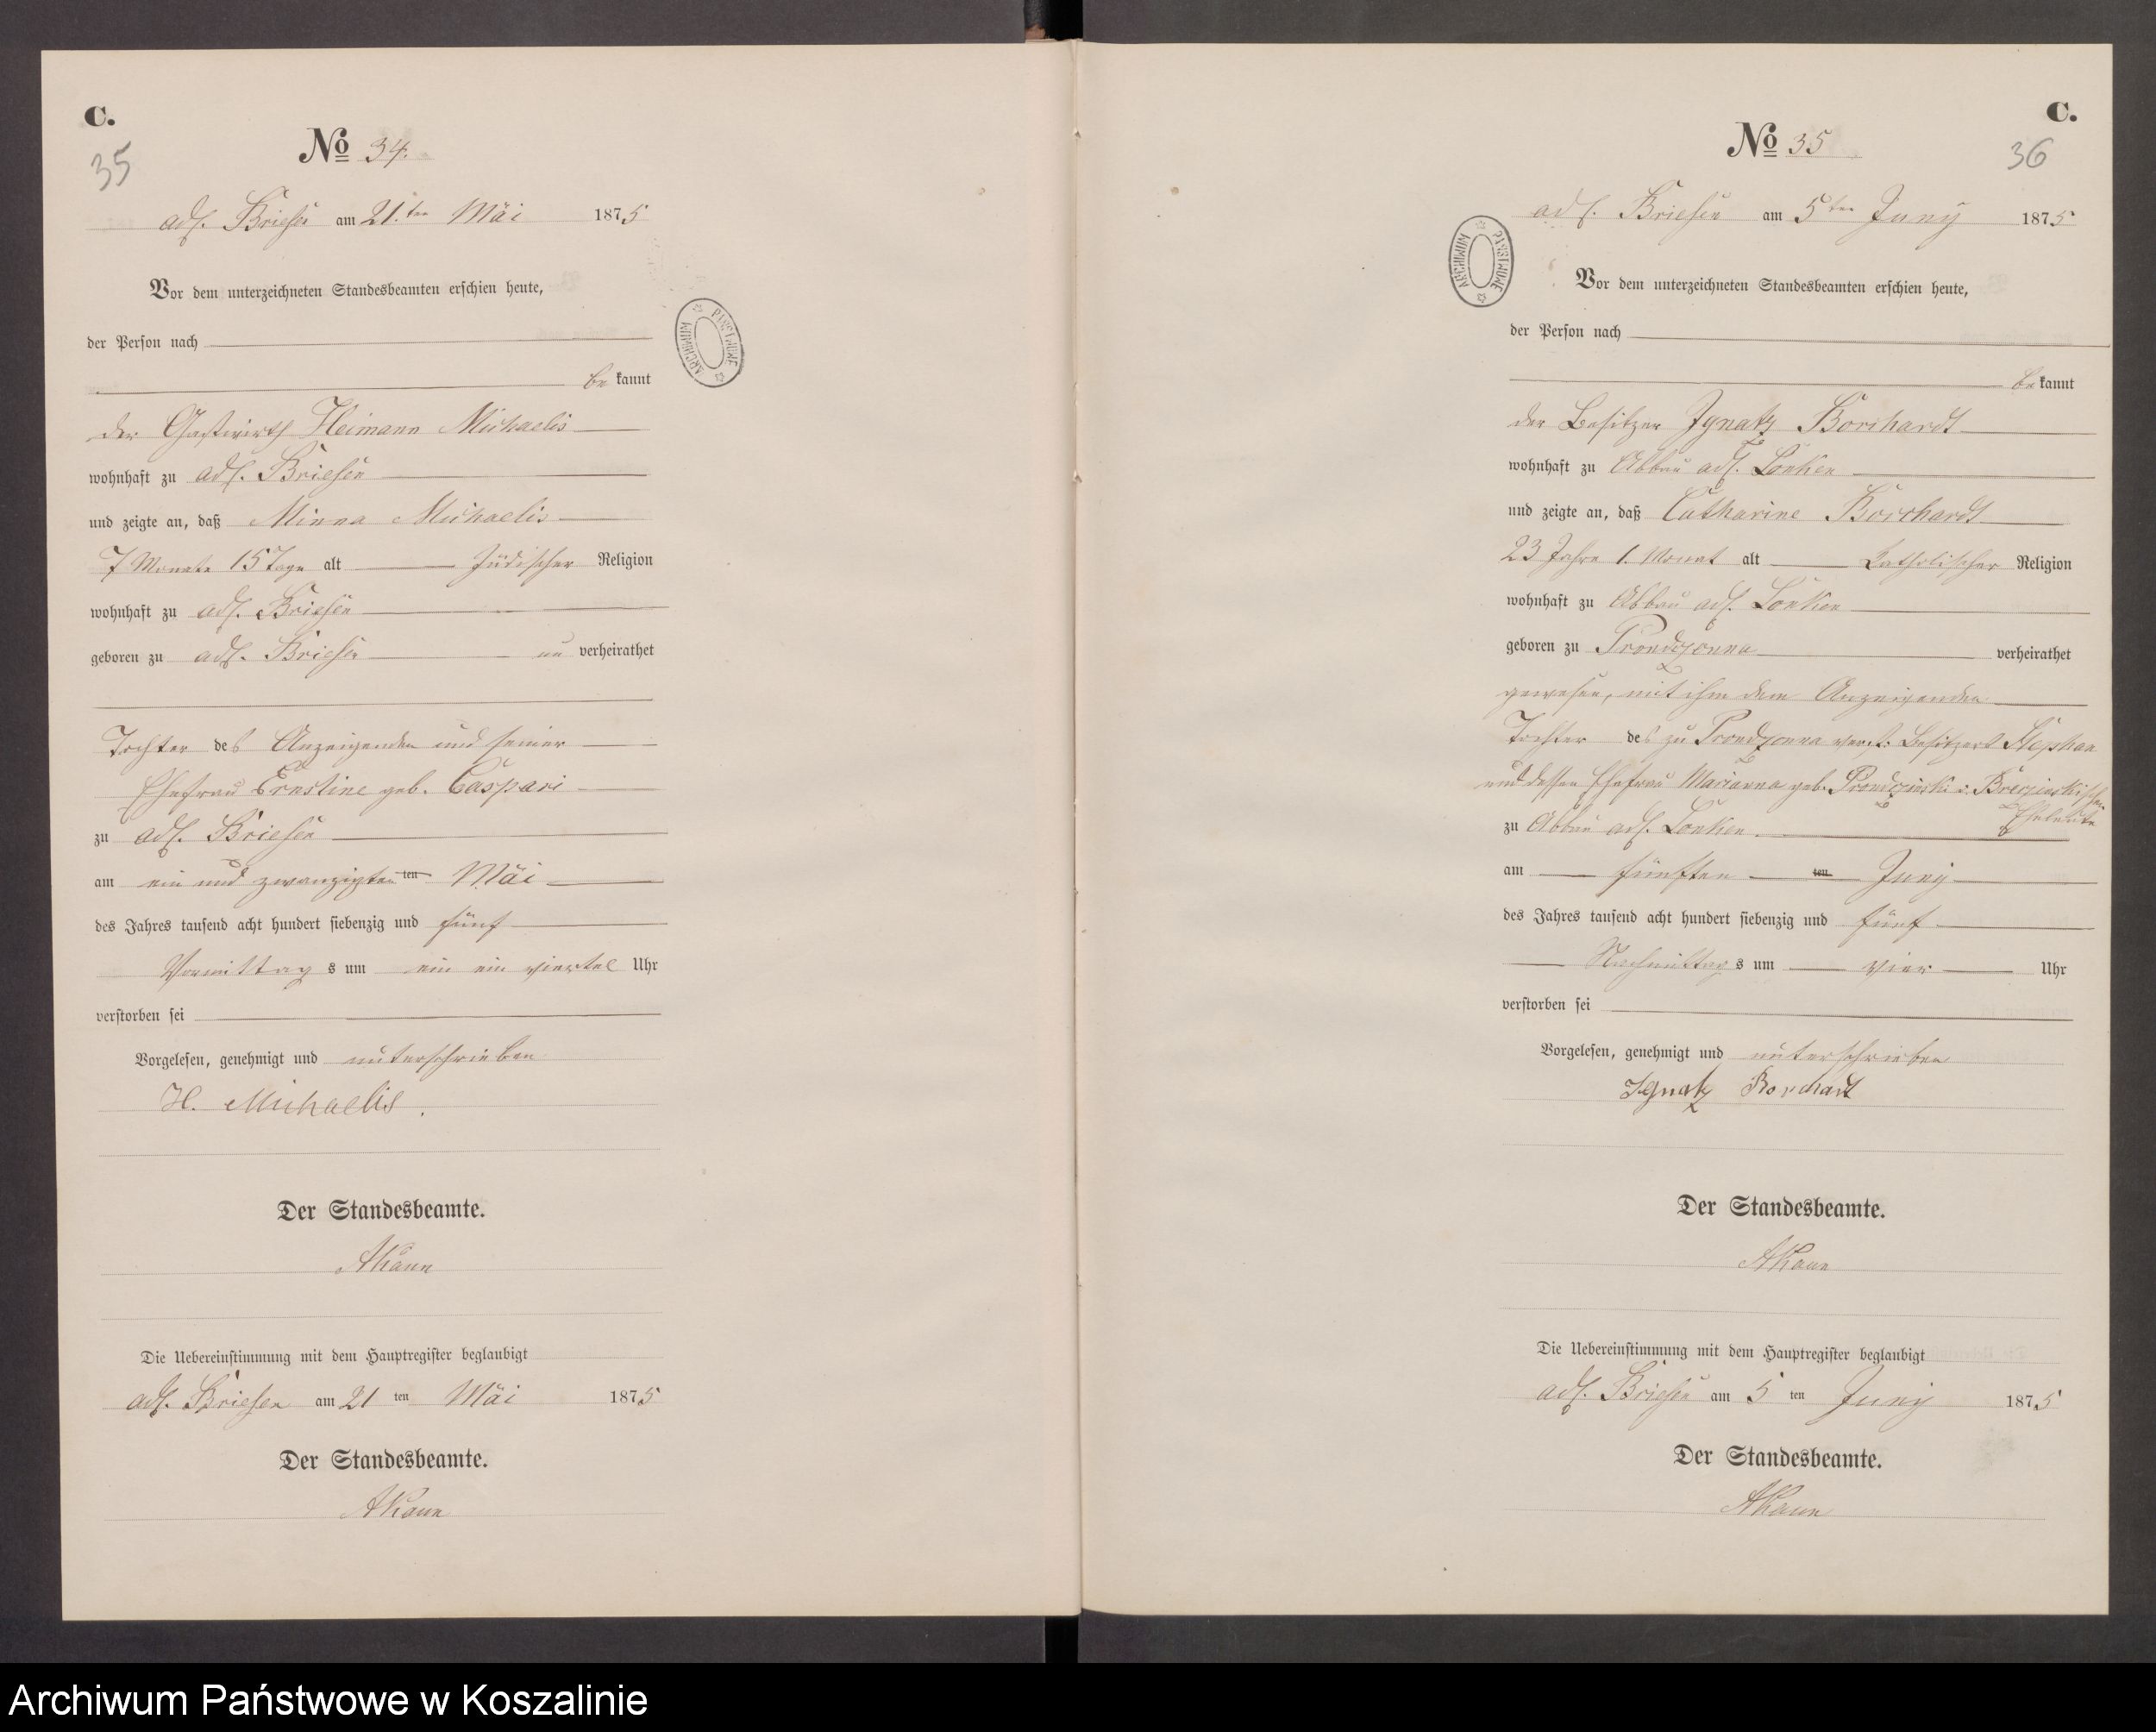 C.
35
No 34.
adl. Briesen am 21.ten Mai 1875
Vor dem unterzeichneten Standesbeamten erschien heute,
der Person nach
be kannt
der Gastwirth Heimann Michaelis
wohnhaft zu adl. Briesen
und zeigte an, daß Minna Michaelis
7 Monate 15 Tage alt Jüdischer Religion
wohnhaft zu adl. Briesen
geboren zu adl. Briesen un verheirathet
Tochter des Anzeigenden und seiner
Ehefrau Ernestine geb. Caspari
zu adl. Briesen
am ein und zwanzigsten ten Mai
des Jahres tausend acht hundert siebenzig und fünf
Vormittag s um ein ein viertel Uhr
verstorben sei
Vorgelesen, genehmigt und unterschrieben
H. Michaelis.
Der Standesbeamte.
Die Uebereinstimmung mit dem Hauptregister beglaubigt
adl. Briesen am 21 ten Mai 1875
Der Standesbeamte.
ARCHIWUM PAŃSTWOWE
C.
36
No 35
adl. Briesen am 5ten Juny 1875
Vor dem unterzeichneten Standesbeamten erschien heute,
der Person nach
be kannt
der Besitzer Ignatz Borchardt
wohnhaft zu Abbau adl. Lonken
und zeigte an, daß Catharine Borchardt
23 Jahre 1. Monat alt Katholischer Religion
wohnhaft zu Abbau adl. Lonken
geboren zu Prondzonna verheirathet
gewesen, mit ihm dem Anzeigenden
Tochter des zu Prondzonna verst. Besitzers Stephan
und dessen Ehefrau Marianna geb.
Eheleute
zu Abbau adl. Lonken.
am fünften ten Juny
des Jahres tausend acht hundert siebenzig und fünf
Nachmittag s um vier Uhr
verstorben sei
Vorgelesen, genehmigt und unterschrieben
Ignatz Borchardt
Der Standesbeamte.
Die Uebereinstimmung mit dem Hauptregister beglaubigt
adl. Briesen am 5 ten Juny 1875
Der Standesbeamte.
ARCHIWUM PAŃSTWOWE
Archiwum Państwowe w Koszalinie